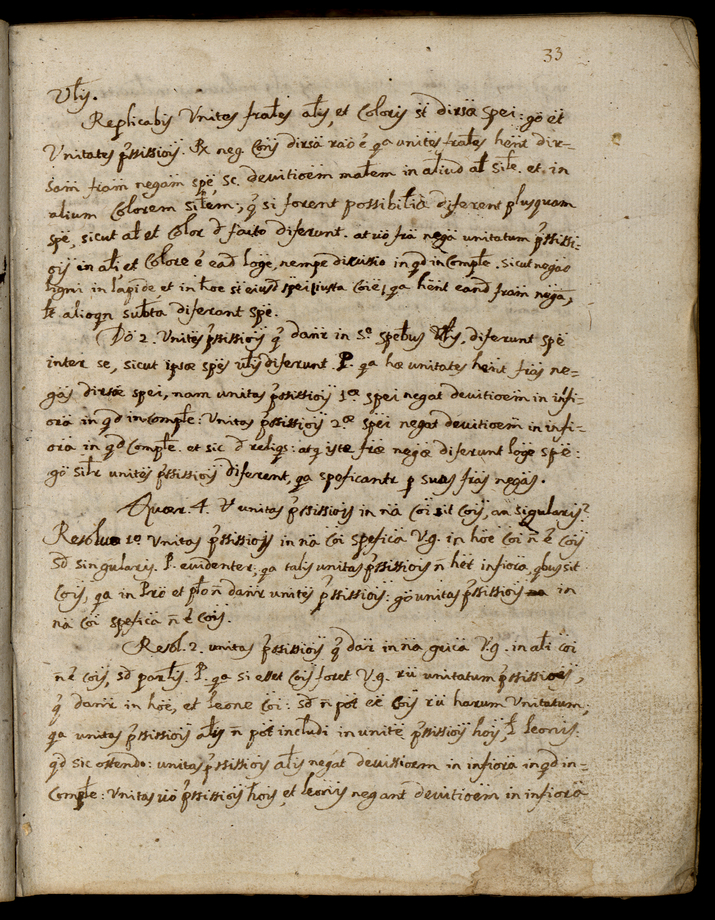 33
Vlis.
Replicabis Vnitas fralis alis, et Coloris st dirsæ spei: go et
Vnitates pssissiois. Rx neg. Coris dirsa rao e qa unites frales hent dir-
sam fram negam spe, sc. devitioem malem in aliud al sile. et in
alium Colorem silem; q si forent possibilia diferent plusquam
spe, sicut al et Color d facto diferunt. at uo fra nega unitatum pssissi-
ois in ali et Colore e ead loge, nempe in qd in Comple. sicut negao
ligni in lapide et in hoe st eiusd spei iuxta Coie, qa hent eand fram nega,
lt alioqn subta diferant spe.
Do 2. Vnites pssissiois q danr in Se spebus Vlis, diferunt spe
inter se, sicut ipsæ spes ulis diferunt. P. qa hæ unitates hent fras ne-
gas dirsæ spei, nam unitas pssissiois 1æ spei negat devitioem in infi-
ora in qd incomple: Vnitas pssissiois 2æ spei negat devitioem in infi-
ora in qd Comple. et sic d reliqs: atq iste fræ negæ diferunt loge spe:
go silr unites pssissiois diferent, qa speficantr p suas fras negas.
Quær. 4. Vt unitas pssissiois in na Coi sit Cois, an singularis?
Resoluo 1o Vnitas pssissiois in na Coi spefica V.g. in hoe Coi n e Cois
sd singularis. P. evidenter, qa talis unitas pssissiois n het infiora, qbus sit
Cois, qa in Pro et plo n danr unites pssissiois: go unitas pssissiois in
na Coi spefica n e Cois.
Resol. 2. unitas pssissiois q dar in na grica V.g. in ali coi
n e cois, sd parlis. P. qa si esset Cois foret V.g. ru unitatum pssissiois,
q danr in hoe, et Leone Coi: sd n pot ee Cois ru harum Vnitatum;
qa unitas pssissiois alis n pot includi in unite pssissiois hois, l Leonis.
qd sic ostendo: unitas pssissiois alis negat devissioem in infiora in qd in-
Comple: Vnitas uo pssissiois hois, et Leonis negant devitioem in infiora